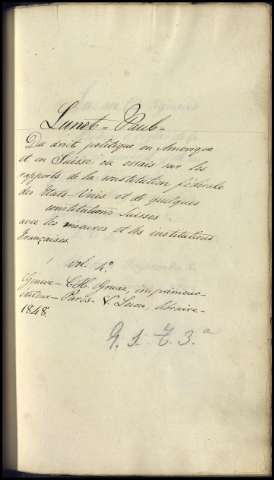 Lunet - Paul -
Du droit politique en Amérique
et en Suisse ou essais sur les
rapports de la constitution fédérale
des Etats-Unis et de quelques
constitutions suisses
avec les moeurs et les institutions
françaises.
1 vol. 4º
Genève - Ch. Gruaz, imprimeur-
éditeur - Paris - V. Lecou, libraire -
1848.
G. 1. Z. 3.ª